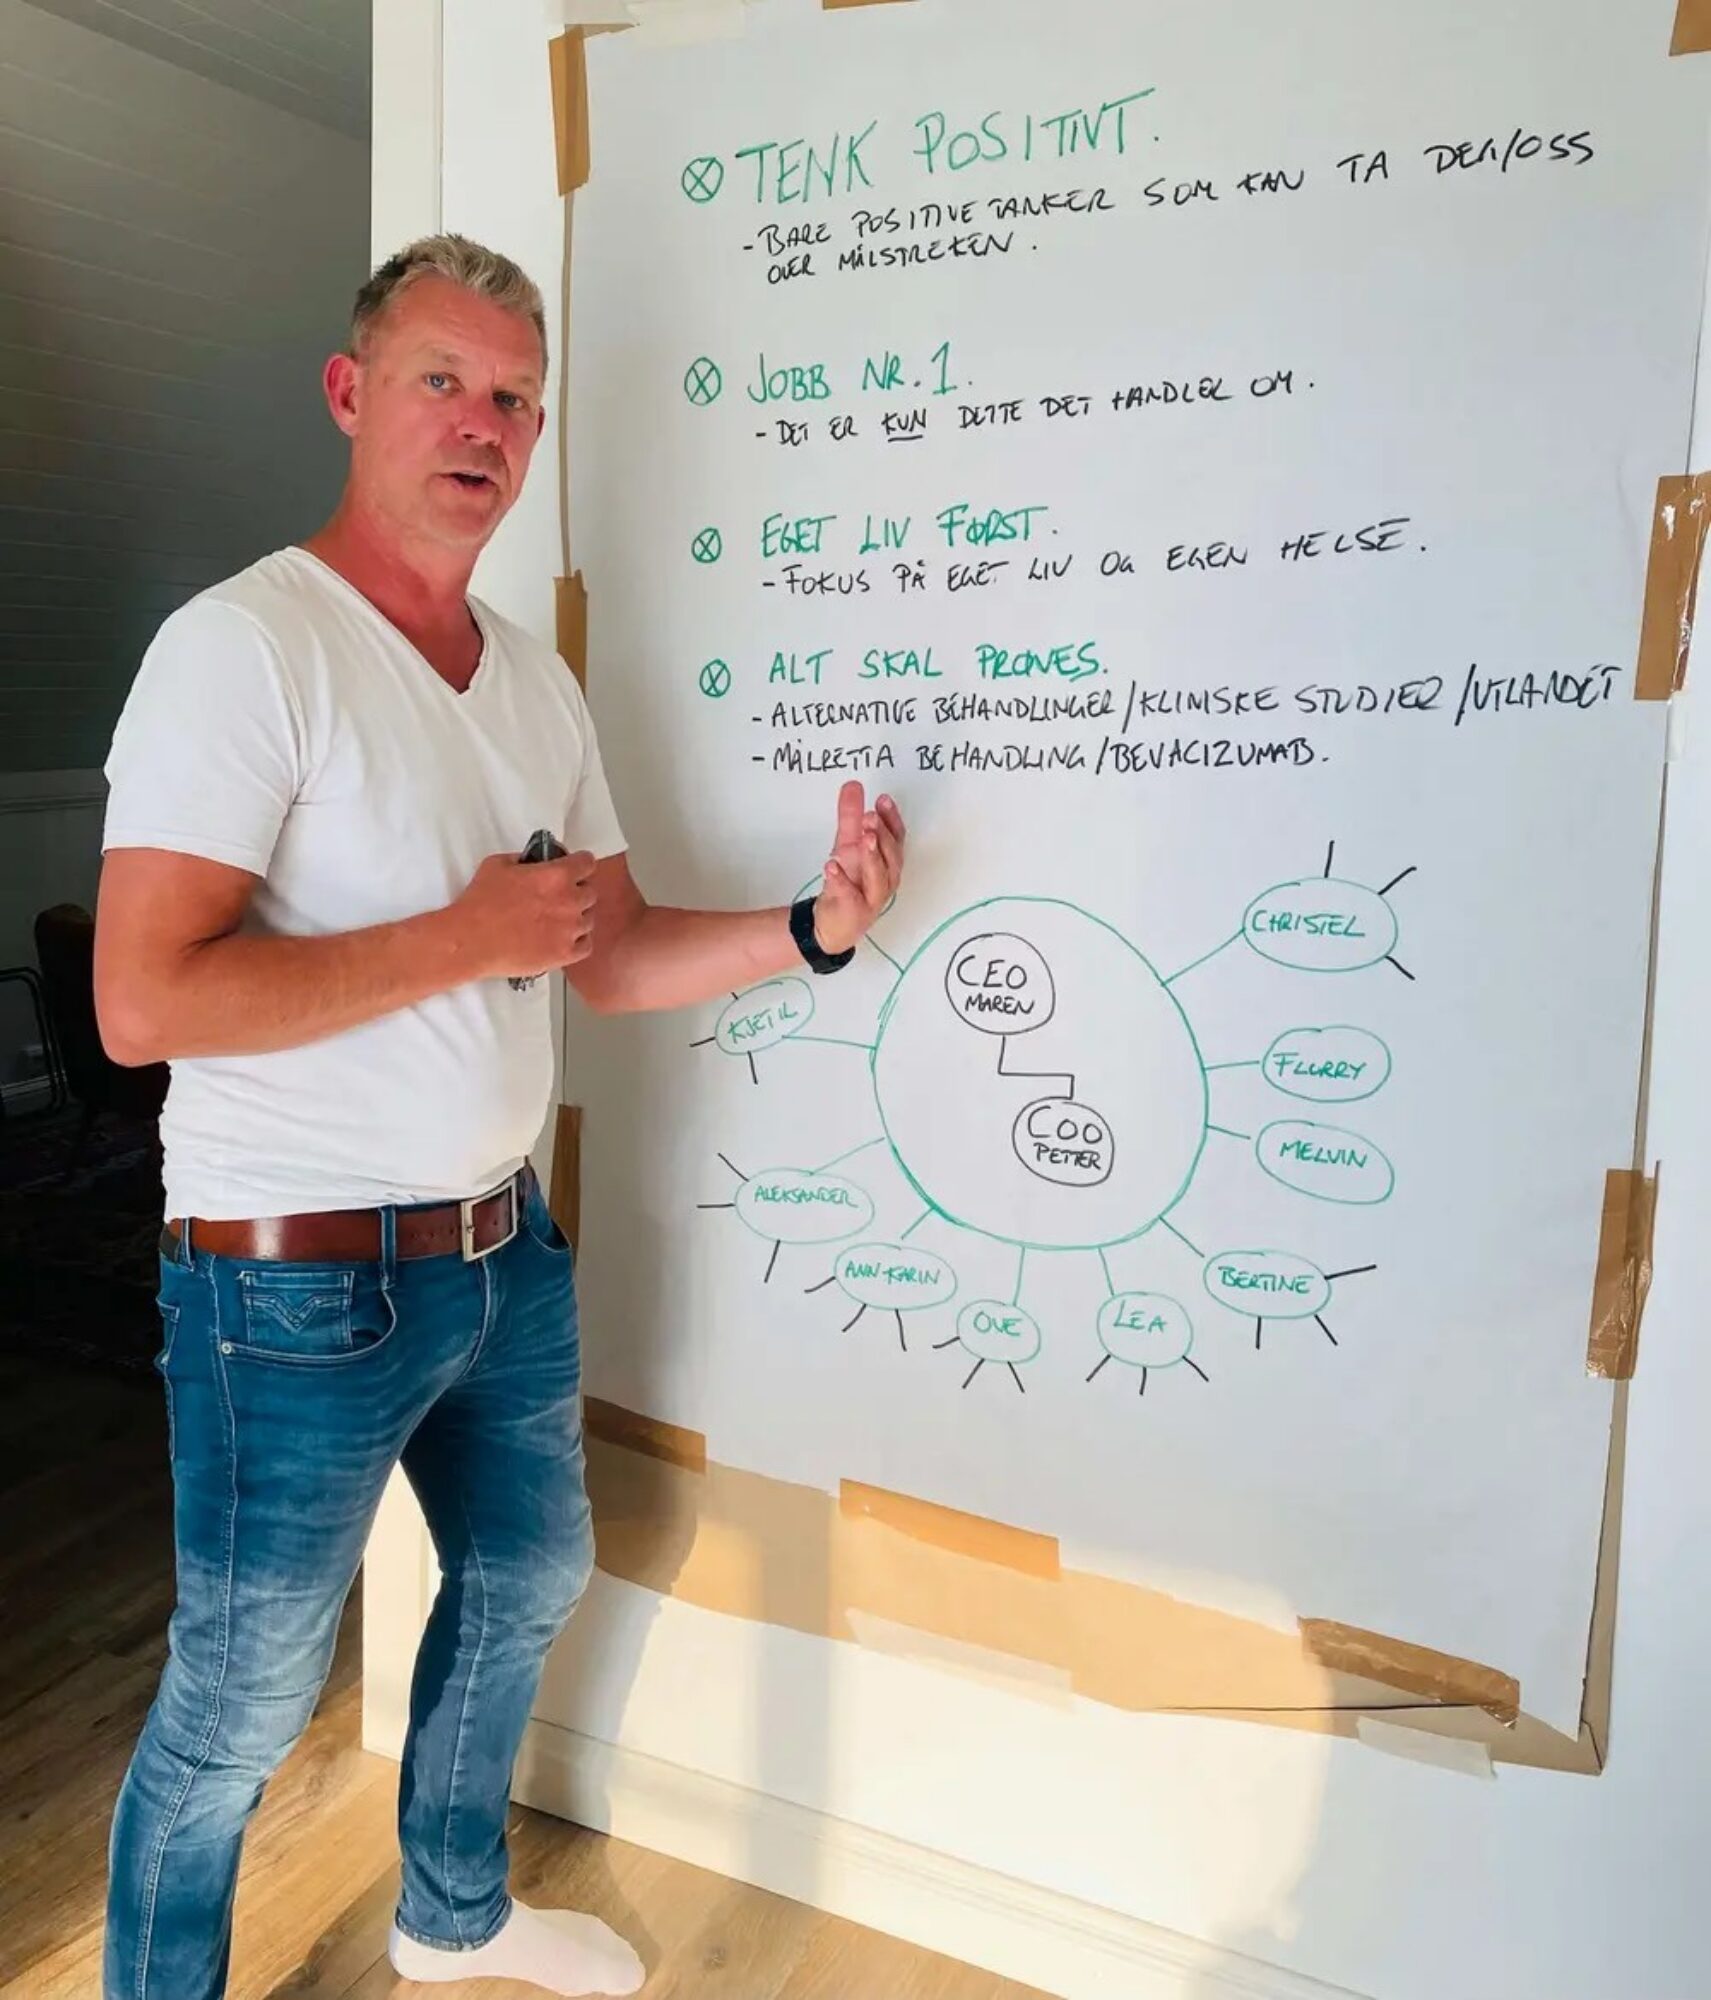 TENK POSITIVT.
- BARE POSITIVE TANKER SOM KAN TA DEG/OSS
OVER MÅLSTREKEN.
JOBB NR. 1.
- DET ER KUN DETTE DET HANDLER OM.
EGET LIV FØRST.
- FOKUS PÅ EGET LIV OG EGEN HELSE.
ALT SKAL PRØVES.
- ALTERNATIVE BEHANDLINGER/KLINISKE STUDIER/UTLANDET
- MÅLRETTA BEHANDLING/BEVACIZUMAB.
CHRISTEL
CEO
MAREN
KJETIL
FLURRY
COO
PETTER
MELVIN
ALEKSANDER
ANN-KARIN
BERTINE
OVE
LEA